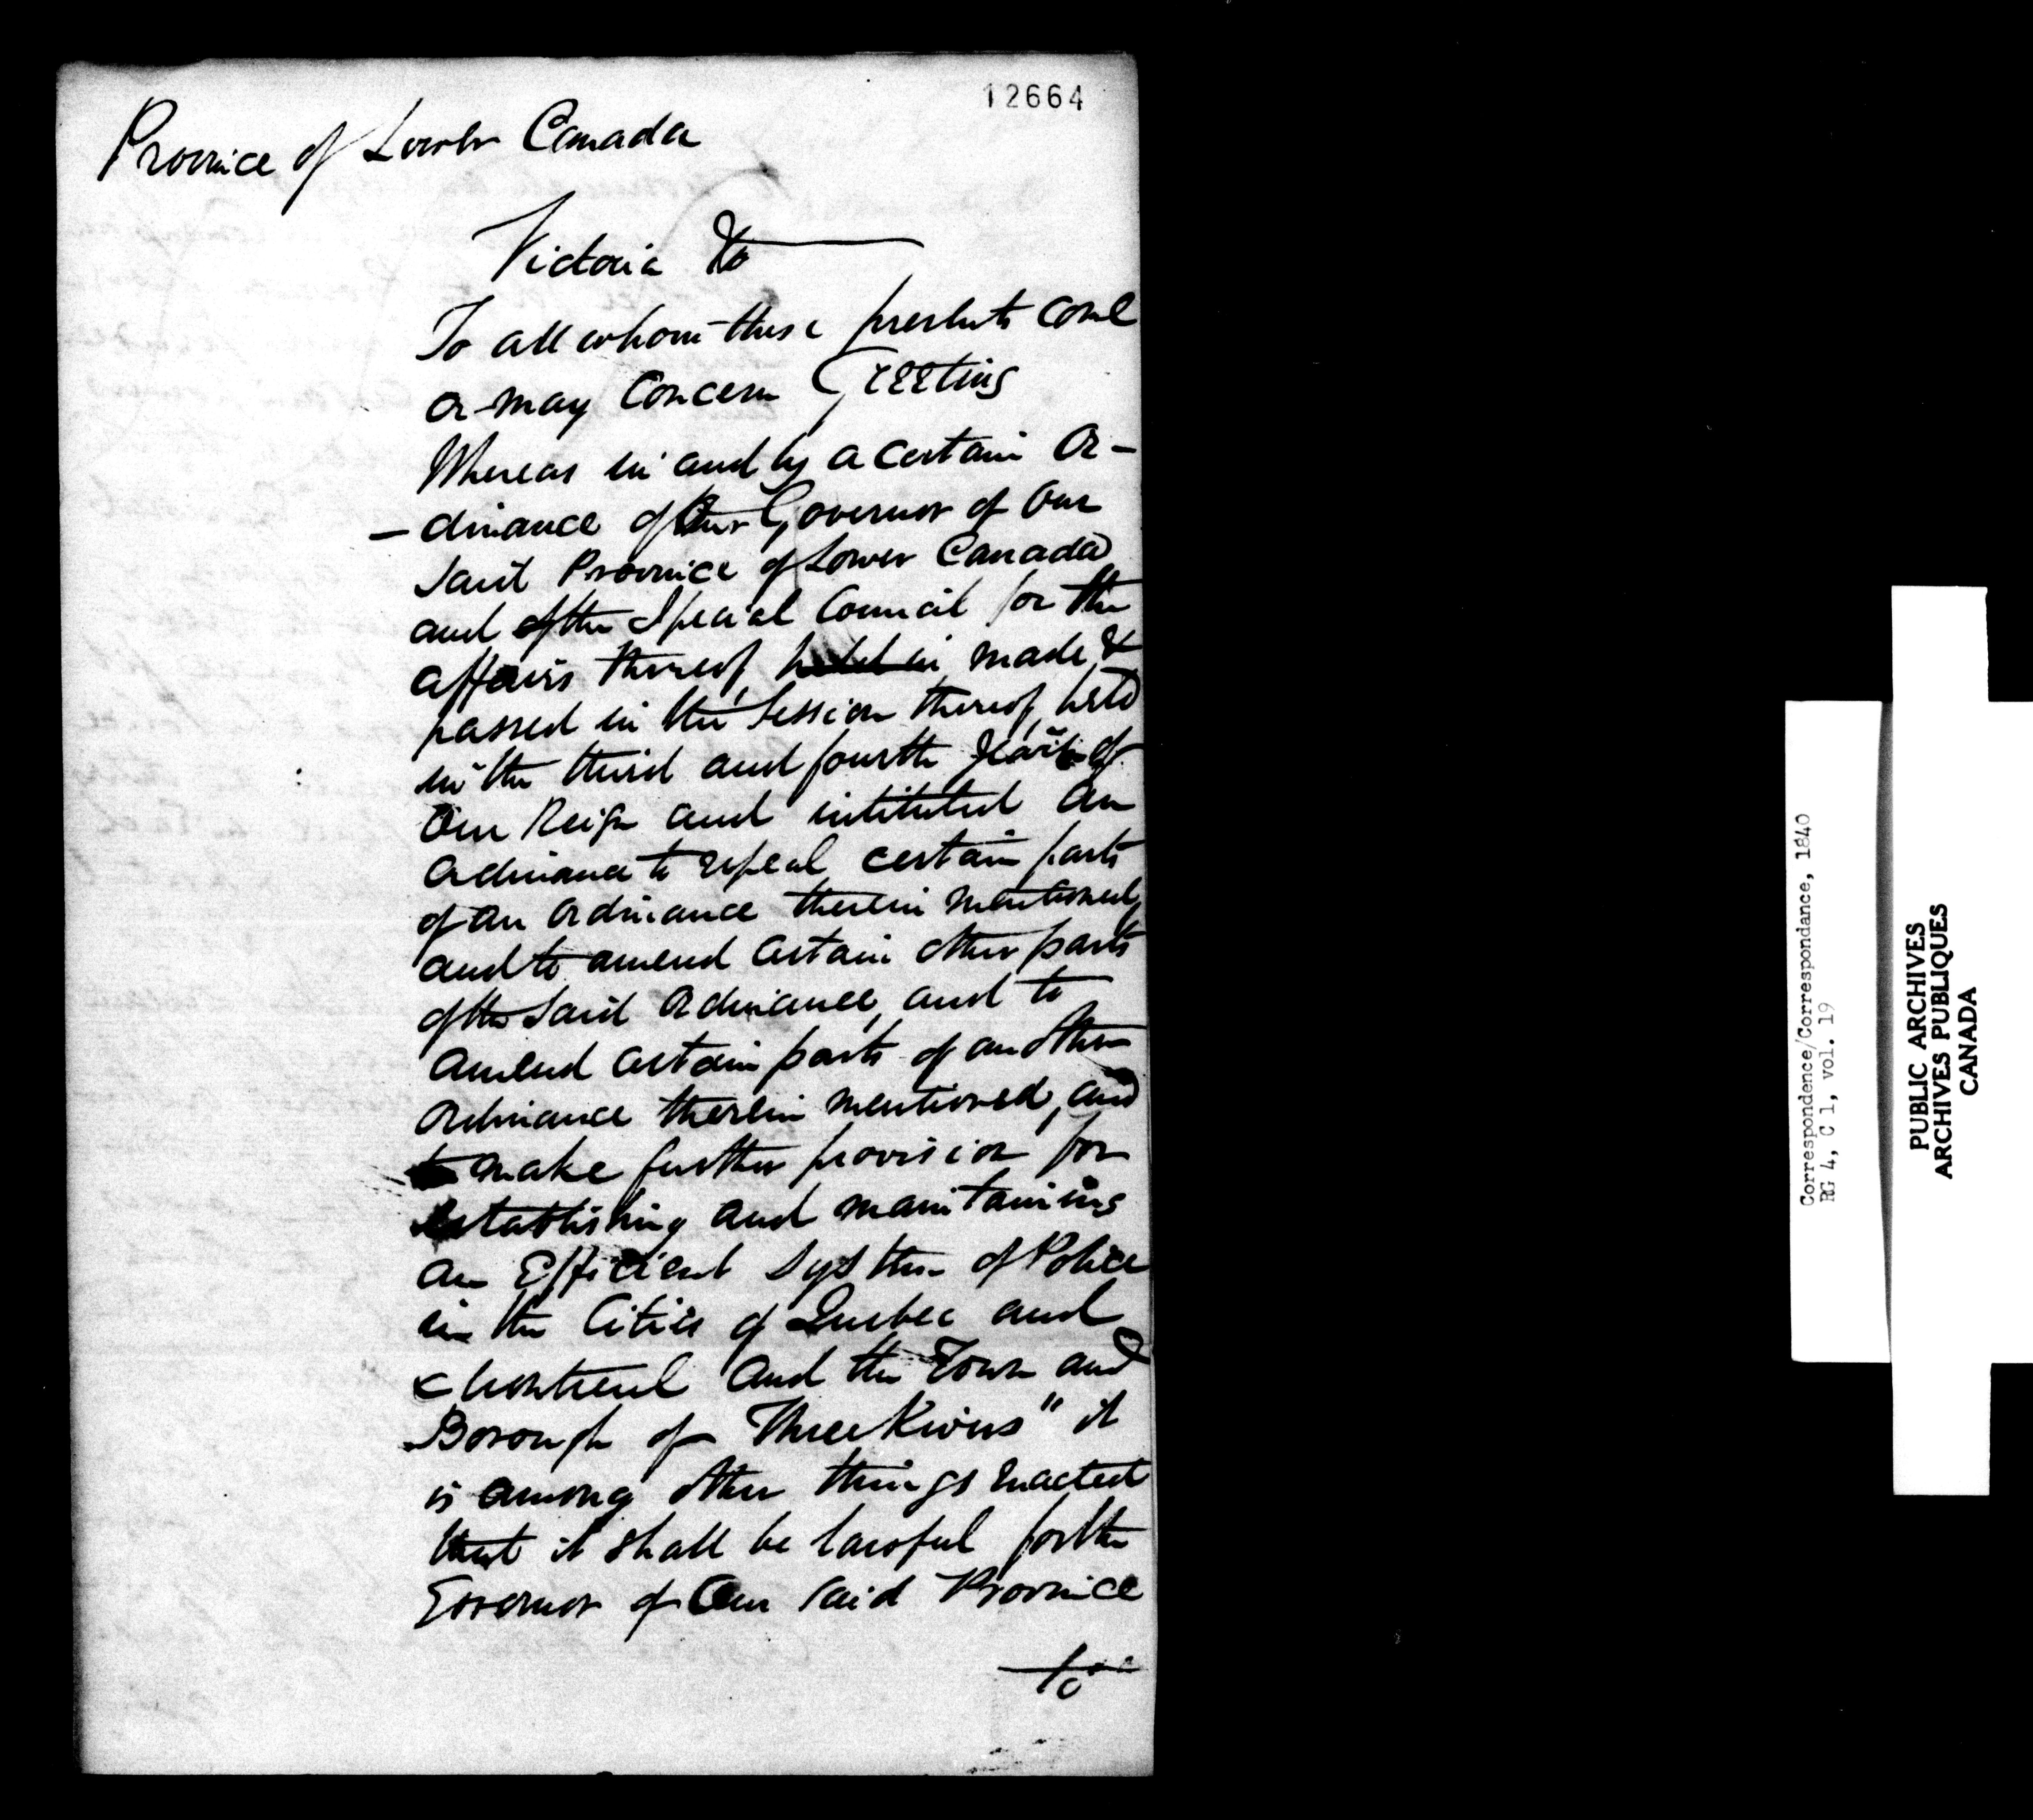 12664
Province of Lower Canada
Victoria &c
To all whom these presents come
or may Concern Greeting
Whereas in and by a certain Or-
-dinance of the Governor of Our
said Province of Lower Canada
and of the Special Council for the
affairs thereof, held in made &
passed in the Session thereof, held
in the third and fourth Years of
Our Reign and intituled An
Ordinance to repeal certain parts
of an Ordinance therein mentioned,
and to amend certain other parts
of the said Ordinance, and to
amend certain parts of another
Ordinance therein mentioned, and
to make further provision for
establishing and maintaining
an Efficient System of Police
in the Cities of Quebec and
Montreal and the Town and
Borough of Three Rivers" it
is among other things enacted
that it shall be lawful for the
Governor of Our said Province
to
Correspondence/Correspondance, 1840
RG 4, C 1, vol. 19
PUBLIC ARCHIVES
ARCHIVES PUBLIQUES
CANADA